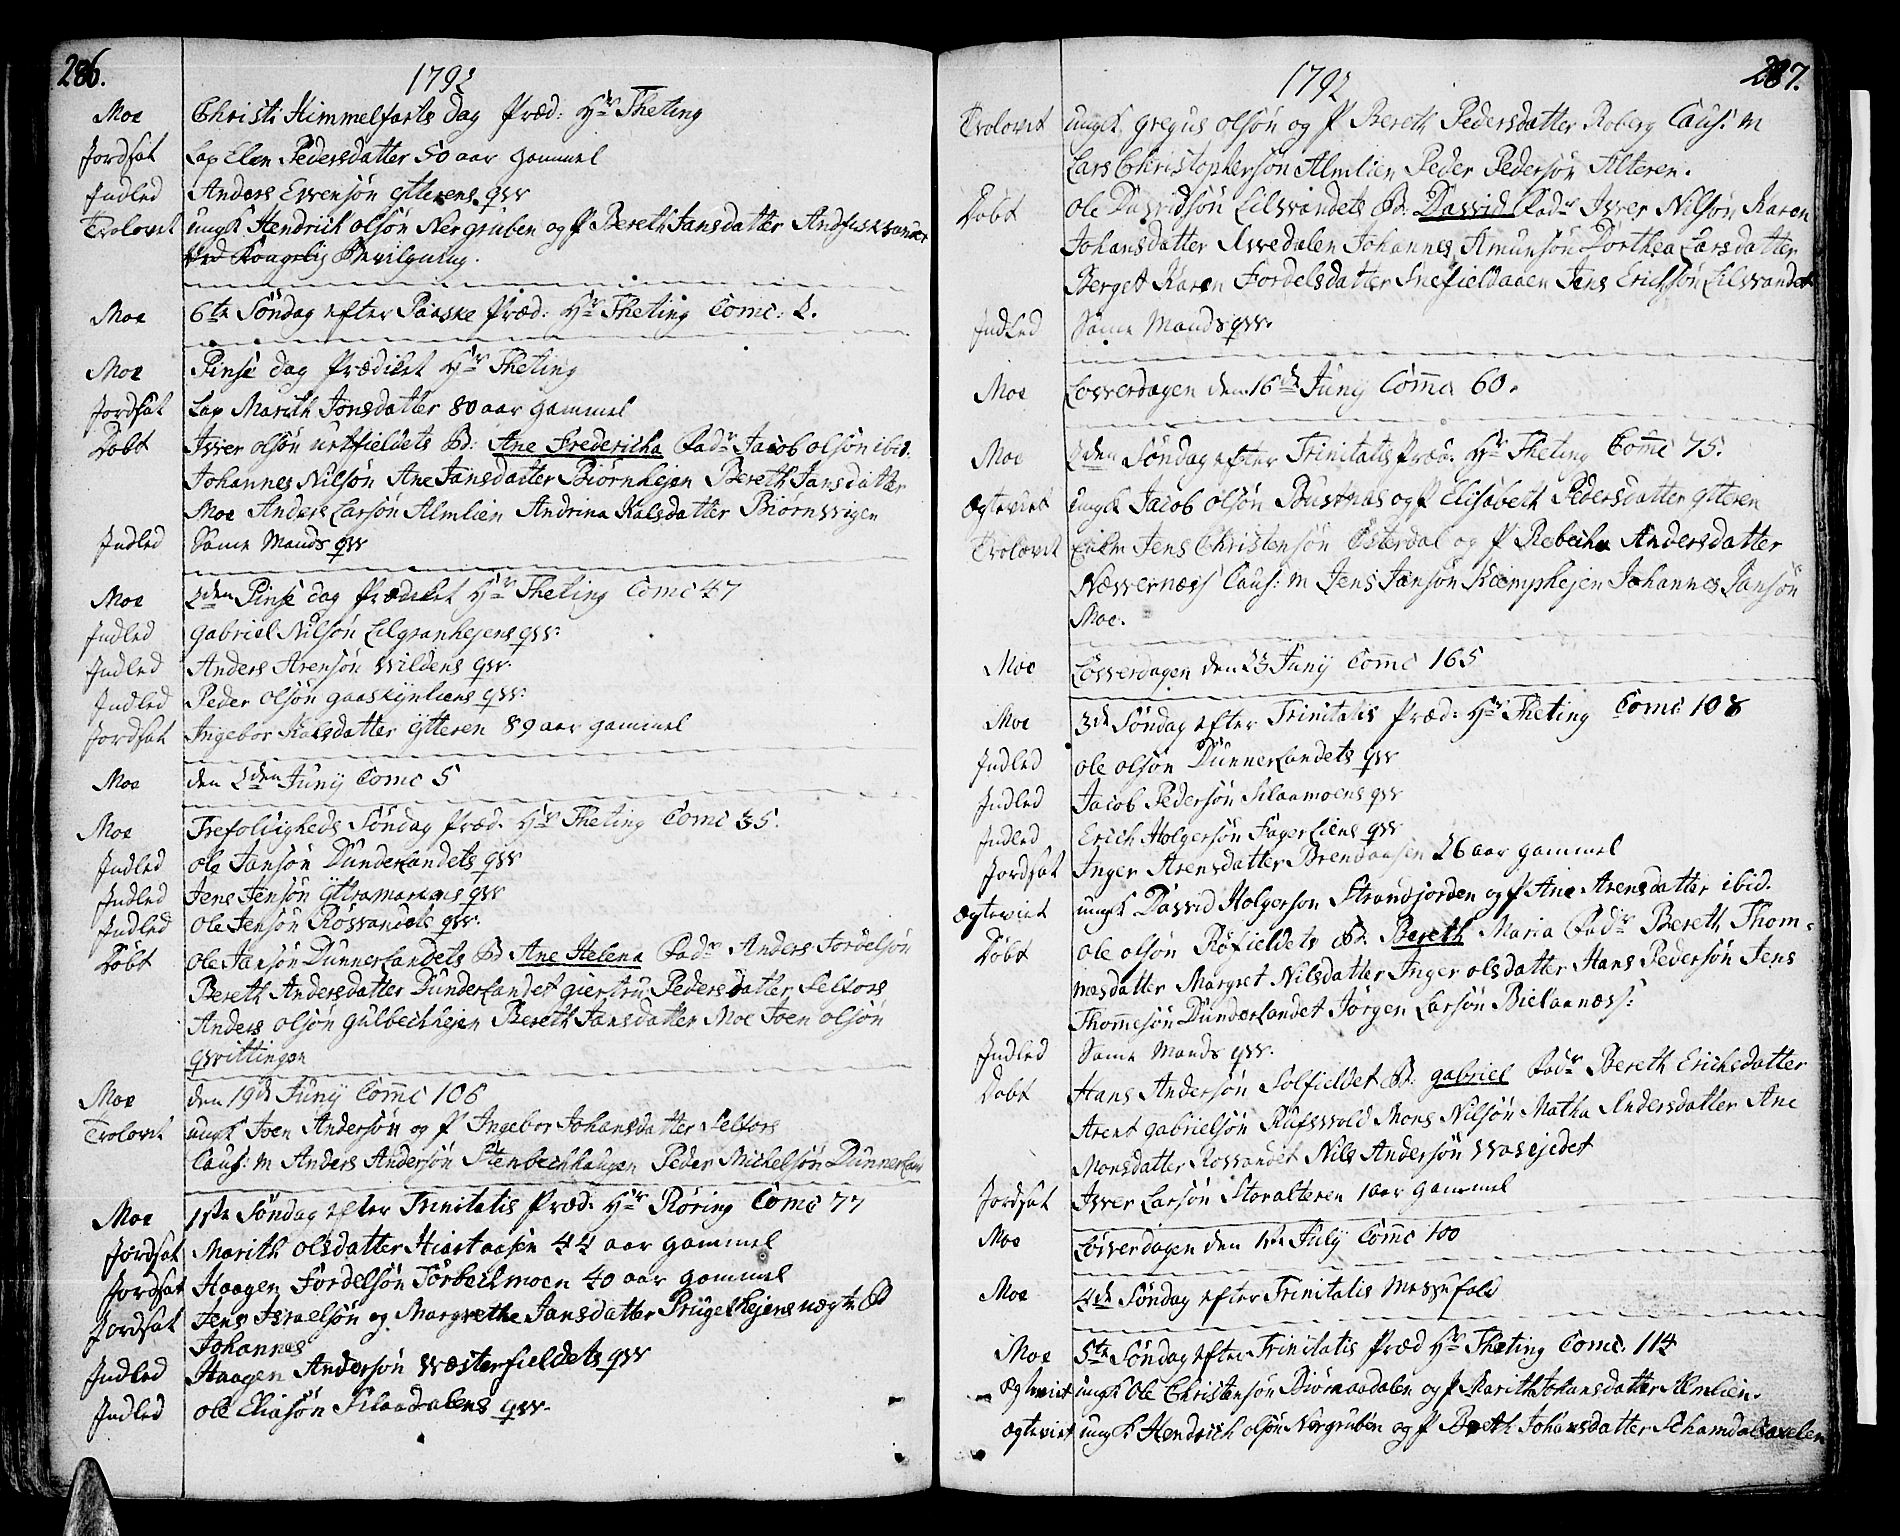 286.
1792
Moe Christi Himmelfarts Dag Præd: Hr Theting
Jordsat Lap Elen Pedersdatter 50 aar gammel
Indled Anders Evensøn Ytterens qvr
Trolovet ungk Hendrich olsøn Nergruben og P Bereth Jansdatter Andfiskvandet
Ved Kongelig Bevilgning.
Moe 6te Søndag efter Paaske Præd: Hr Theting Comc: 2.
Moe Pinse dag Prædiket Hr Theting
Jordsat Lap Marith Jonsdatter 80 aar gammel
Døbt Iver olsøn urtfieldets B: Ane Fredericha Fadr Jacob olsøn ibid.
Johannes Nilsøn Ane Jansdatter Biørnhejen Bereth Jansdatter
Moe Anders Larsøn Almlien Andrina Kalsdatter Biørnvigen
Indled Same Mands qvr
Moe 2den Pinse dag Prædiket Hr Theting Comc 47
Indled Gabriel Nilsøn Lilgranhejens qvr:
Indled Anders Arensøn Vildens qvr.
Indled Peder olsøn gaaskynliens qvr:
Jordsat Ingebor Kalsdatter Ytteren 89 aar gammel
Moe den 2den Junij Comc 5
Moe Trefoligheds Søndag Præd. Hr Theting Comc 35.
Indled ole Jansøn Dunderlandets qvr
Indled Jens Jensøn Yttramarens qvr
Indled Ole Jensøn Røsvandets qvr.
Døbt Ole Jansøn Dunnerlandets B Ane Helena Fadr Anders Fordelsøn
Bereth Andersdatter Dunderlandet giertru Pedersdatter Selfors
Anders olsøn gulbechhejen Bereth Jansdatter Moe Joen olsøn
qvittingen
Moe den 19de Junij Comc 106
Trolovet ungk Joen Andersøn og P Ingebor Johansdatter Selfors
Cauf: M Anders Andersøn Stenbechhaugen Peder Michelsøn Dunnerland
Moe 1ste Søndag efter Trinitatis Præd. Hr Røring Comc 77
Jordsat Marith olsdatter Hiartaasen 44 aar gammel
Jordsat Haagen Fordelsøn Torbechmoen 40 aar gammel
Jordsat Jens Israelsøn og Margrethe Jansdatter Prygelhejens uægte B
Johannes
Indled Haagen Andersøn Vesterfieldets qvr
Indled ole Eliasøn Silaadalens qvr.
287.
1792
Trolovet ungk. gregus olsøn og P Bereth Pedersdatter Roberg Cauf: M
Lars Christophersøn Almlien Peder Pedersøn Alteren.
Døbt Ole Davidsøn Lilvandets B: David Fadr Iver Nilsøn Karen
JohansdatterÆvedalen Johannes Amunsøn Dorthea Larsdatter
Berget Karen Fordelsdatter Snefieldaaen Jens Erichsøn Lilvandet
Indled Same Mands qvr.
Moe Løverdagen den 16de Junij Comc 60.
Moe 2den Søndag efter Trinitatis Præd. Hr Theting Comc 75.
Ægteviet ungk Jacob olsøn Bustnæs og P Elisabeth Pedersdatter Ytteren
Trolovet Enkm Jens Christensøn Østerdal og P Rebecha Andersdatter
Nævernæs Cauf: M Jens Jansøn Kæmphejen Johannes Jansøn
Moe.
Moe Løverdagen den 23 Junij Comc 165
Moe 3de Søndag efter Trinitatis Præd: Hr Theting Comc 108
Indled ole olsøn Dunnerlandets qvr
Indled Jacob Pedersøn Silaamoens qvr
Indled Erich Holgersøn Fagerliens qvr
Jordsat Inger Arensdatter Brendaasen 26 aar gammel
Ægteviet ungk David Holgersøn Strandjorden og P Ane Arensdatter ibid.
Døbt ole olsøn Røfieldets B: Bereth Maria Fadr Bereth Thom-
masdatter Margret Nilsdatter Inger olsdatter Hans Pedersøn Jens
Thommesøn Dunderlandet Jørgen Larsøn Bielaanæss:
Indled Same Mands qvr.
Døbt Hans Andersøn Solfieldet B: gabriel Fadr Bereth Erichsdatter
Arent gabrielsøn Rufsvold Mons Nilsøn Matha Andersdatter Ane
Monsdatter Rosvandet Nils Andersøn Vasejedet
Jordsat Iver Larsøn Storalteren 1 aar gammel
Moe Løverdagen den 1ste July Comc 100
Moe 4de Søndag efter Trinitatis Messefald
Moe 5te Søndag efter Trinitatis Præd Hr Theting Comc. 114
Ægteviet ungk Ole Christensøn Biørnaadalen og P Marith Johansdatter Almlien.
Ægteviet ungk Hendrich olsøn Nergruben og P Bereth Johansdatter